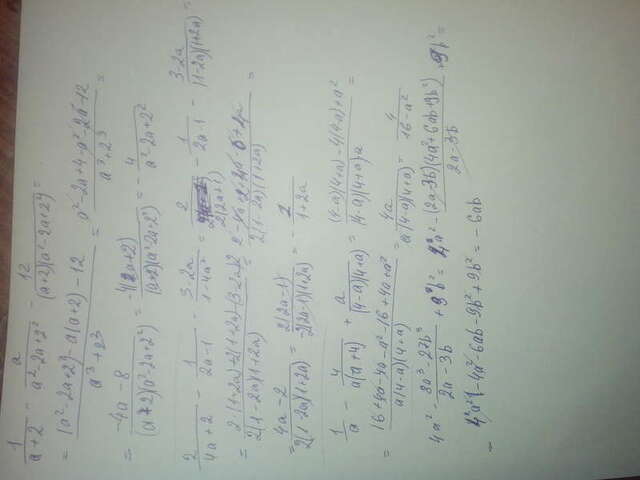 1/(a+2) - a/(a²-2a+2²) - 12/((a+2)(a²-2a+2²)) =
= ((a²-2a+2²)-a(a+2)-12)/(a³+2³) = (a²-2a+4-a²-2a-12)/(a³+2³) =
= (-4a-8)/((a+2)(a²-2a+2²)) = (-4(a+2))/((a+2)(a²-2a+2²)) = -4/(a²-2a+2²)
2/(4a+2) - 1/(2a-1) - (3-2a)/(1-4a²) = 2/(2(2a+1)) - 1/(2a-1) - (3-2a)/((1-2a)(1+2a))
= /(2(1-2a)(1+2a)) = /(2(1-2a)(1+2a)) =
(4a-2)/(2(1-2a)(1+2a)) = (2(2a-1))/(-2(2a-1)(1+2a)) = - /(1+2a)
1/a - 4/(a(a+4)) + a/((4-a)(4+a)) = ((4-a)(4+a)-4(4-a)+a²)/((4-a)(4+a)a) =
= (16+4a-4a-a²-16+4a+a²)/(a(4-a)(4+a)) = 4a/(a(4-a)(4+a)) = 4/(16-a²)
4a² - (8a³-27b³)/(2a-3b) + 9b² = 4a² - ((2a-3b)(4a²+6ab+9b²))/(2a-3b) + 9b² =
= 4a²-4a²-6ab-9b²+9b² = -6ab